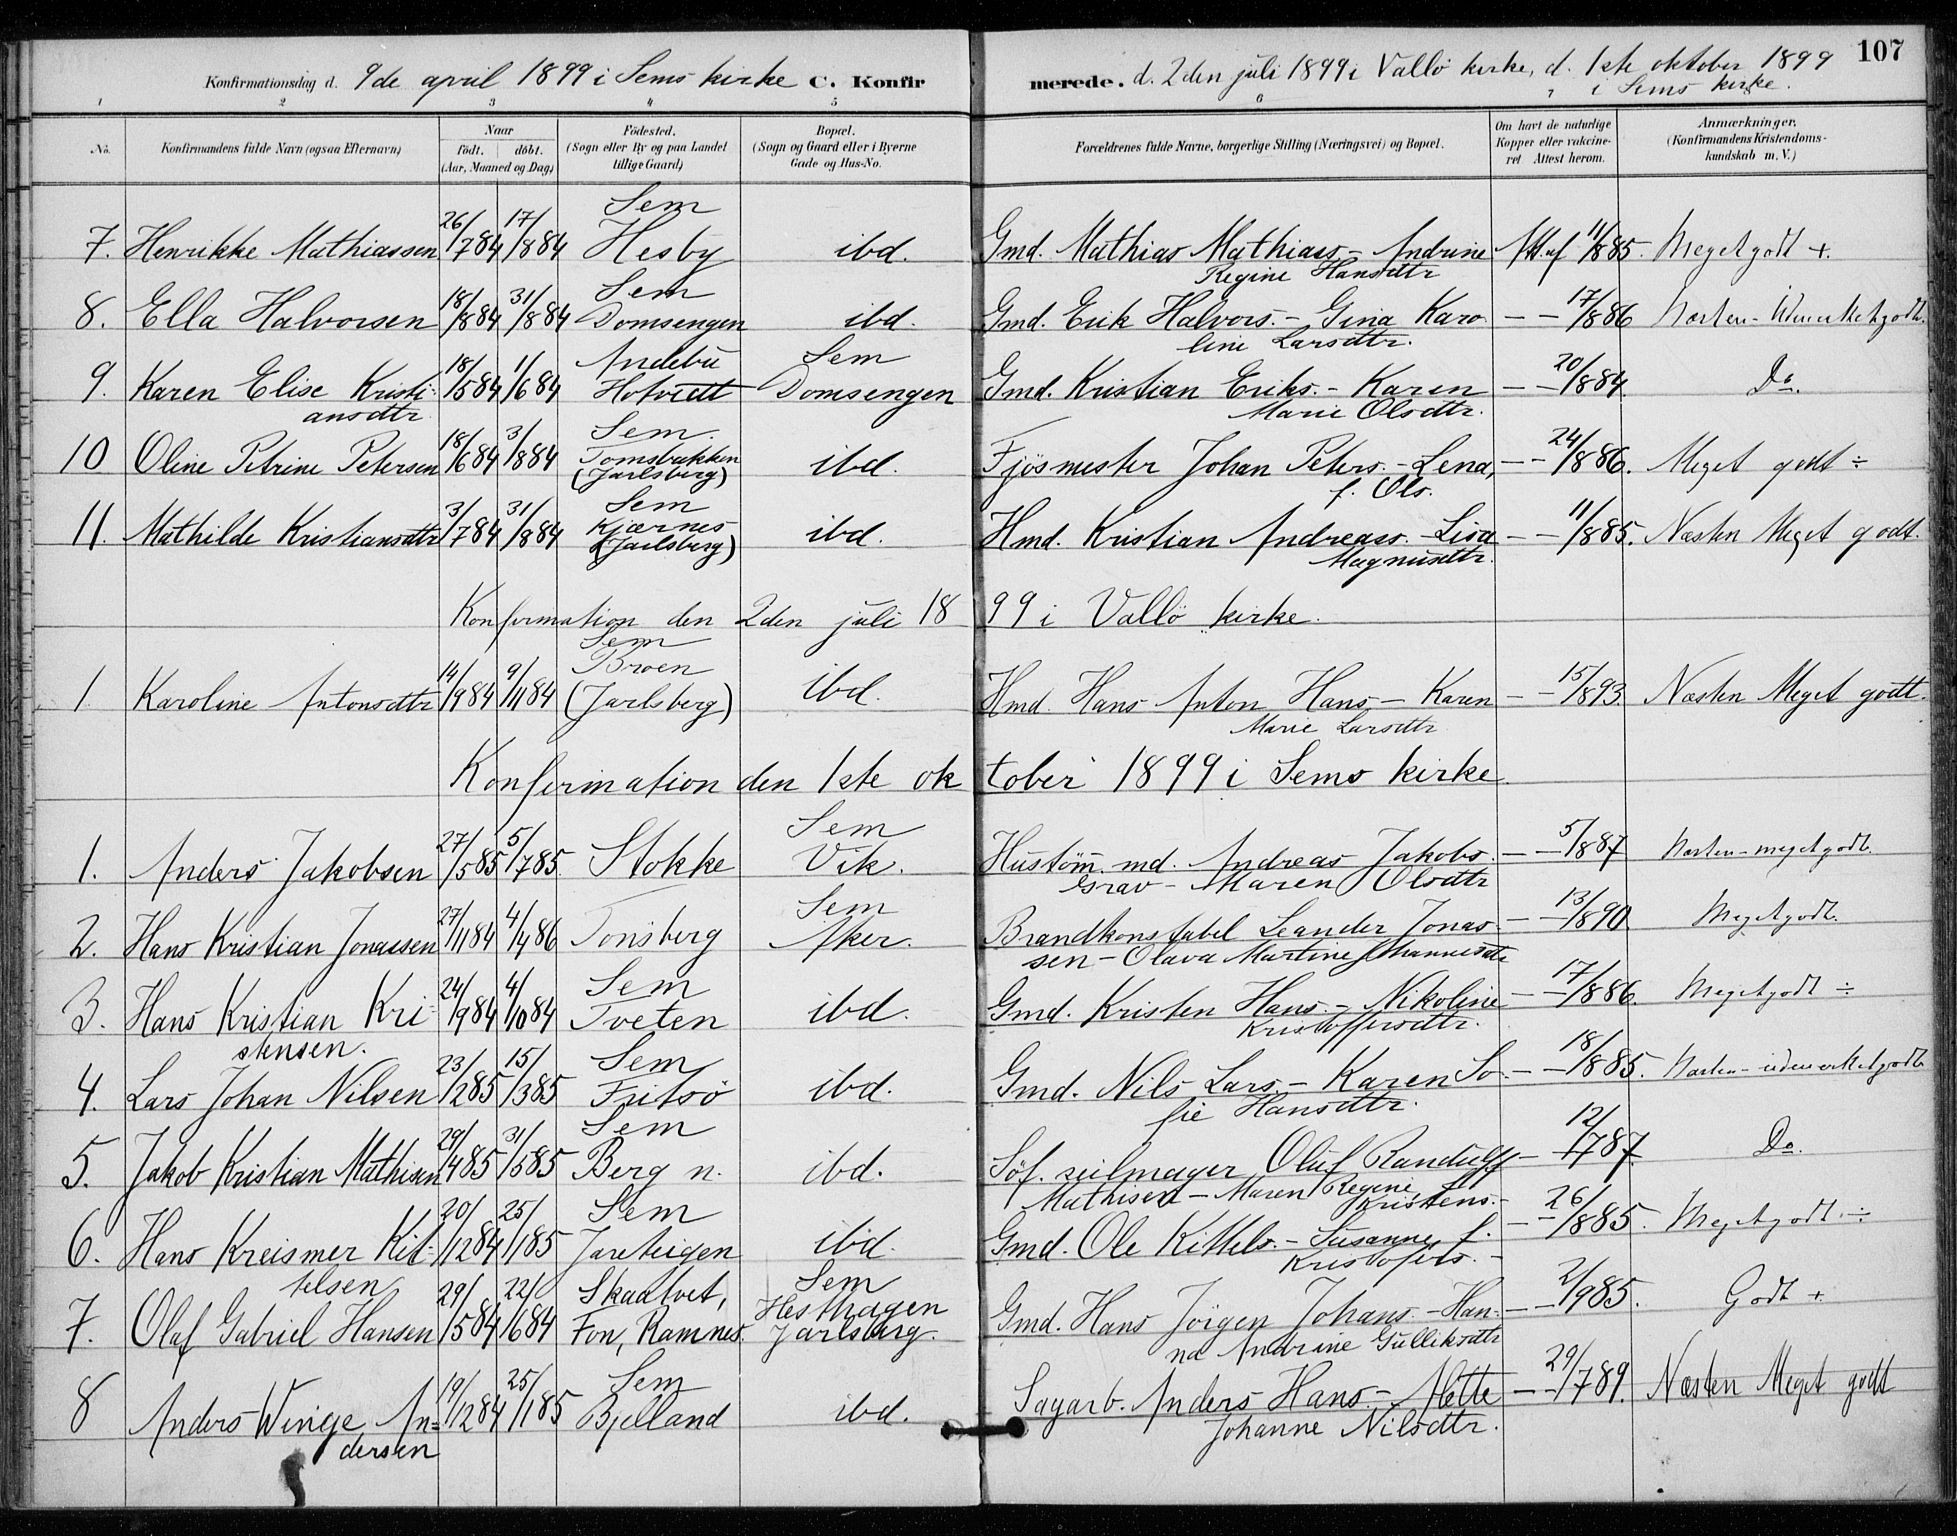 107
Konfirmationsdag d. 9de april 1899 i Sems kirke C. Konfirmerede. d. 2den juli 1899 i Vallö kirke, d. 1ste oktober 1899
i Sems kirke.
1 2 3 4 5 6 7 8
No. Konfirmandens fulde Navn (ogsaa Efternavn) Naar født. døbt. (Aar, Maaned og Dag) Fødested. (Sogn eller By og paa Landet tillige Gaard) Bopæl. (Sogn og Gaard eller i Byerne Gade og Hus-No. Forældrenes fulde Navne, borgerlige Stilling (Næringsvei) og Bopæl. Om havt de naturlige Kopper eller vakcineret. Attest herom. Anmærkninger. (Konfirmandens Kristendomskundskab m. V.)
Sem
7. Henrikke Mathiassen 26/7 84 17/8 84 Hesby ibd. Gmd. Mathias Mathiass.- Andrine Att. af 11/8 85. Meget godt +.
Regine Hansdtr
Sem
8. Ella Halvorsen 18/8 84 31/8 84 Domsengen ibd. Gmd. Erik Halvors. - Gina Karo- - - 17/8 86 Næsten - Udmerket godt.
line Larsdtr.
Andebu Sem
9. Karen Elise Kristi- 18/5 84 1/6 84 Hotvedt Domsengen Gmd. Kristian Eriks. - Karen - - 20/8 84. Do.
ansdtr Marie Olsdtr.
Sem.
10 Oline Petrine Petersen 18/6 84 3/8 84 Tomsbakken ibd. Fjösmester Johan Peters. - Lena, - - 24/8 86. Meget godt ÷
(Jarlsberg) f. Ols.
Sem
11. Mathilde Kristiansdtr 3/7 84 31/8 84 Kjærnes ibd. Hmd. Kristian Andreass. - Lisa - - 11/8 85. Næsten Meget godt.
(Jarlsberg) Magnusdtr.
Konfirmation den 2den juli 1899 i Vallö kirke.
Sem
Broen
1. Karoline Antonsdtr 14/9 84 9/11 84 (Jarlsberg) ibd. Hmd. Hans Anton Hans - Karen - - 15/8 93. Næsten Meget godt.
Marie Larsdtr
Konfirmation den 1ste oktober 1899 i Sems kirke
Sem
1. Anders Jakobsen 27/5 85 5/7 85. Stokke Vik. Hustöm. md. Andreas Jakobs. - - 5/8 87 Næsten - meget godt.
Grav - Maren Olsdtr
Sem
2. Hans Kristian Jonassen 27/11 84 4/4 86 Tönsberg Aker. Brandkonstabel Leander Jonas- - - 13/8 90. Meget godt.
sen - Olava Martine Johannesdtr
Sem
3. Hans Kristian Kri- 24/9 84 4/10 84 Tveten ibd. Gmd. Kristen Hans. - Nikoline - - 17/8 86. Meget godt ÷
stensen. Kristoffersdtr.
Sem
4. Lars Johan Nilsen 23/2 85 15/3 85 Fritsö ibd. Gmd. Nils Lars. - Karen So- - - 18/8 85. Næsten - udmerket godt.
fie Hansdtr.
Sem
5. Jakob Kristian Mathisen 29/4 85 31/5 85 Berg n. ibd. Söf. seilmager Oluf Randulff - - 12/7 87. Do.
Mathisen - Maren Regine Kristens. -
Sem
6. Hans Kreismer Kit- 20/12 84 25/1 85 Jareteigen ibd. Gmd. Ole Kittels. - Susanne f. - - 26/8 85. Meget godt. ÷
telsen Kristofers. -
Skaatvet, Sem
Hesthagen
7. Olaf Gabriel Hansen 29/5 84 22/6 84 Fon, Ramnes. Jarlsberg. Gmd. Hans Jörgen Johans. - Han- - - 2/9 85. Godt +
na Andrine Gulliksdtr
Sem
8 Anders Winge An- 19/12 84 25/1 85 Bjelland ibd. Sagarb. Anders Hans. - Mette - - 29/7 89. Næsten Meget godt
dersen Johanne Nilsdtr.